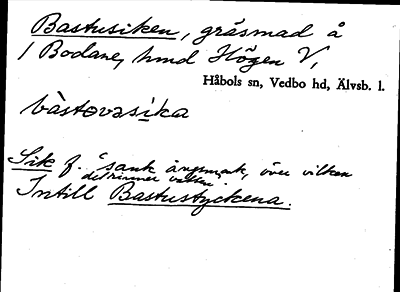 Bastusiken, gräsmad å
1 Bodane, hmd Högen V,
Håbols sn, Vedbo hd, Älvsb. l.
bàstovəsika
Sik f. "sank ängsmark, över vilken
det rinner vatten".
Intill Bastustyckena.